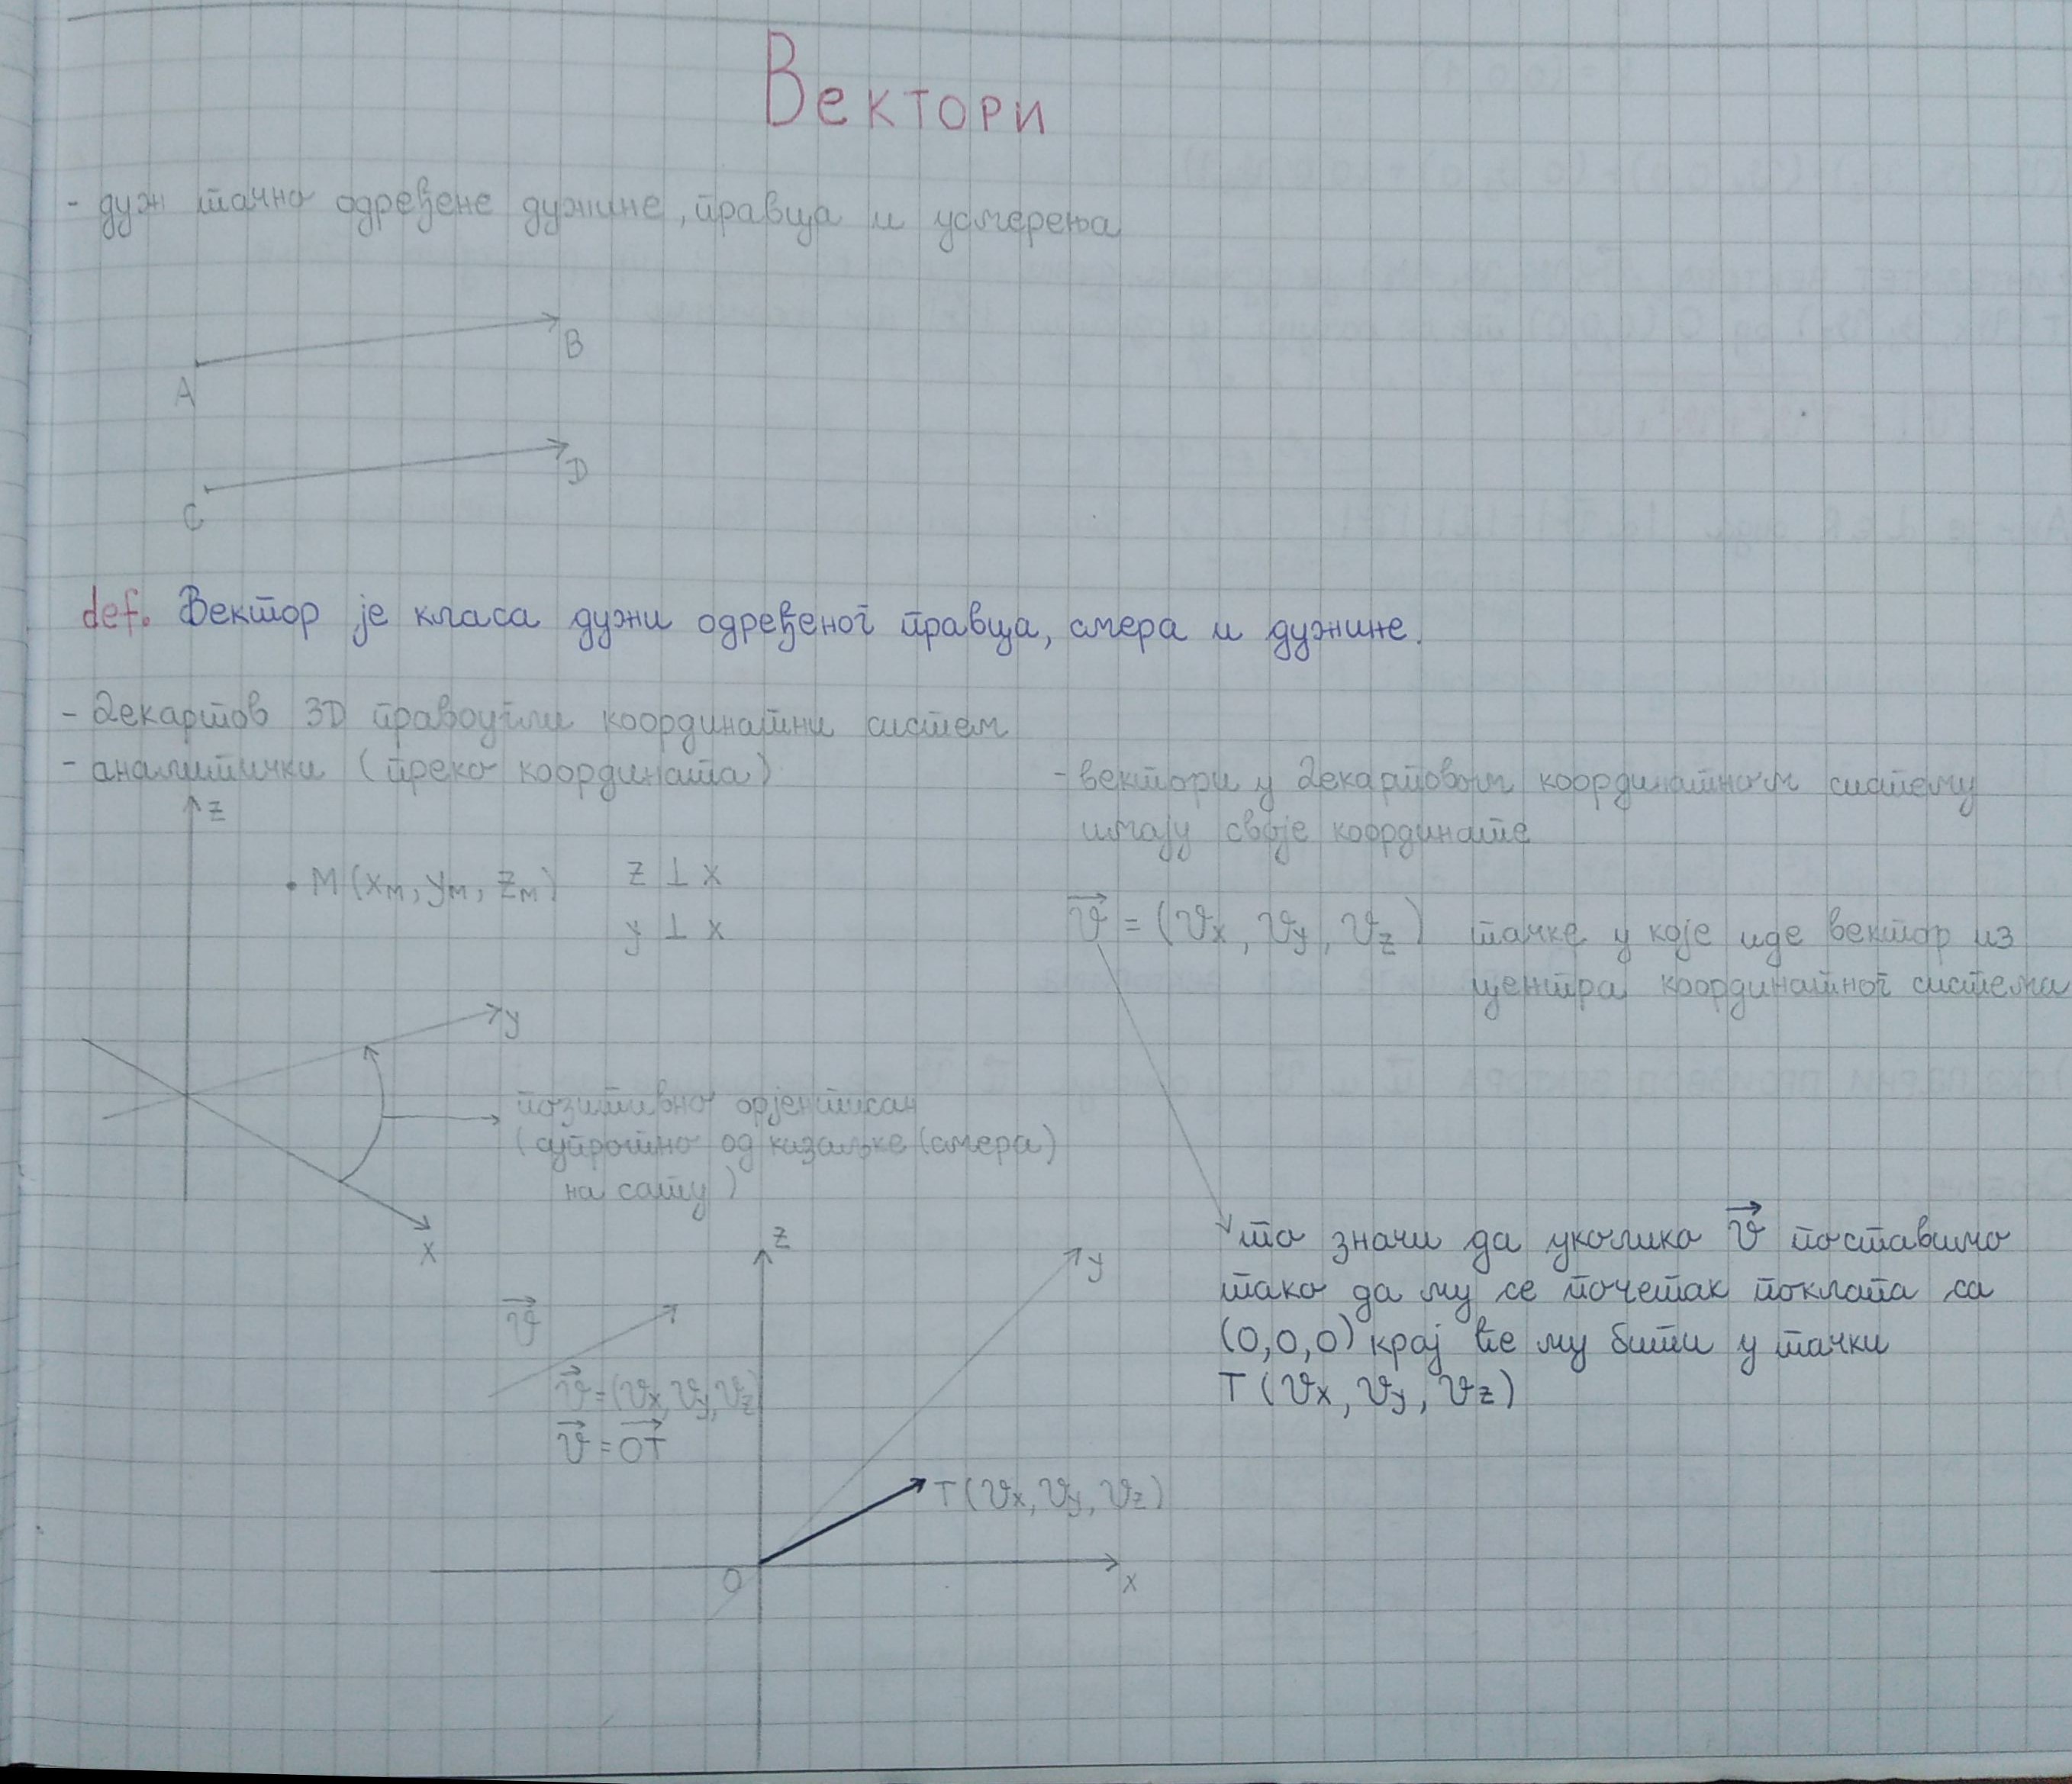 Вектори
- дуж тачно одређене дужине, правца и усмерења
B
A
D
C
def. Вектор је класа дужи одређеног правца, смера и дужине.
- Декартов 3D правоугли координатни систем
- аналитички (преко координата)
z
M(xM, yM, zM)
z ⊥ x
y ⊥ x
y
позитивно оријентисан
(супротно од казаљке (смера)
на сату)
x
- вектори у Декартовом координатном систему
имају своје координате
v⃗ = (vx, vy, vz) тачке у које иде вектор из
центра координатног система
то значи да уколико v⃗ поставимо
тако да му се почетак поклапа са
(0,0,0) крај ће му бити у тачки
T(vx, vy, vz)
z
y
v⃗
v⃗=(vx, vy, vz)
v⃗=OT⃗
T(vx, vy, vz)
O
x